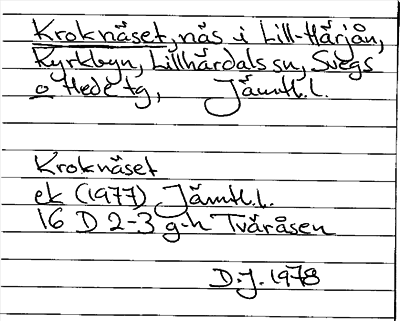 Kroknäset, näs i Lill-Härjån,
Kyrkbyn, Lillhärdals sn, Svegs
o Hede tg, Jämtl.l.
Kroknäset
ek (1977) Jämtl.l.
16 D 2-3 g-h Tväråsen
D.J. 1978